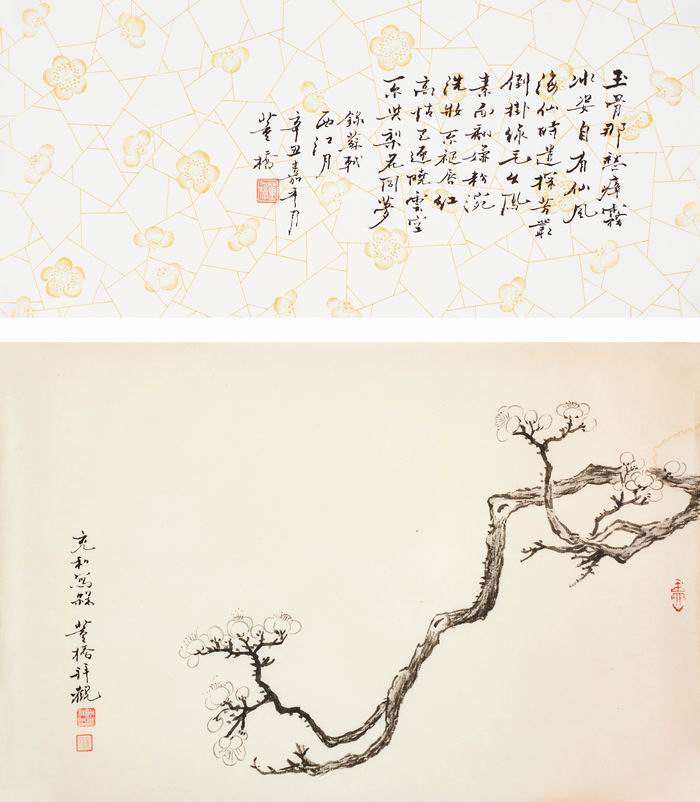 玉骨那愁瘴霧
冰姿自有仙風
海仙時遣探芳叢
倒掛綠毛幺鳳
素面翻嫌粉涴
洗妝不褪唇紅
高情已逐曉雲空
不與梨花同夢
錄蘇軾
西江月
辛丑嘉平月
董橋
充和寫梅 董橋拜觀